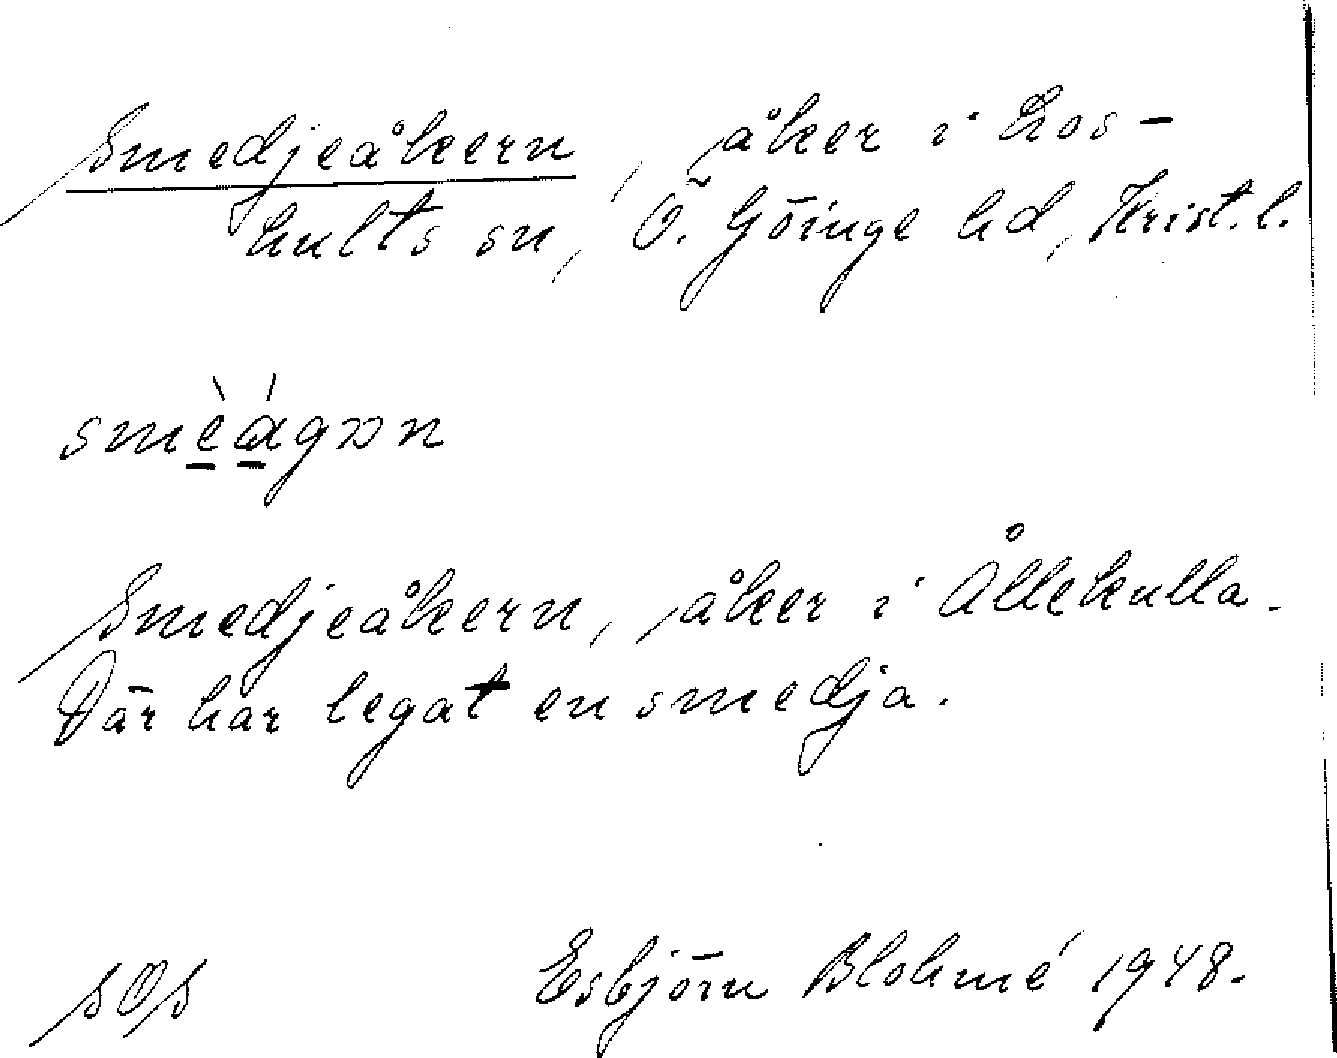 Smedjeåkern, åker i Los-
hults sn, Ö. Göinge hd, Krist.l.
smèágɔn
Smedjeåkern, åker i Ållekulla.
Där har legat en smedja.
Esbjörn Blohmé 1948.